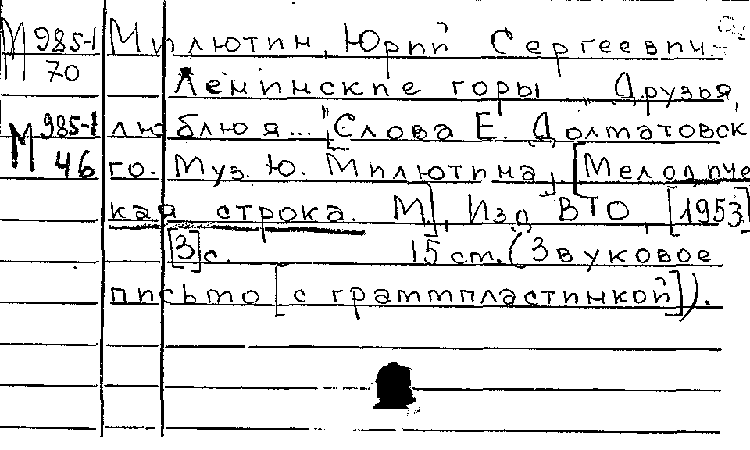 М 985-1 Милютин, Юрий Сергеевич
70 Ленинские горы „Друзья,
М 985-1 люблю я... "[Слова Е. Долматовско
46 го. Муз. Ю. Милютина] [Мелодиче
кая строка. М], Изд ВТО, [1953]
[3]с. 15 cm. (Звуковое
письмо [с грампластинкой]).